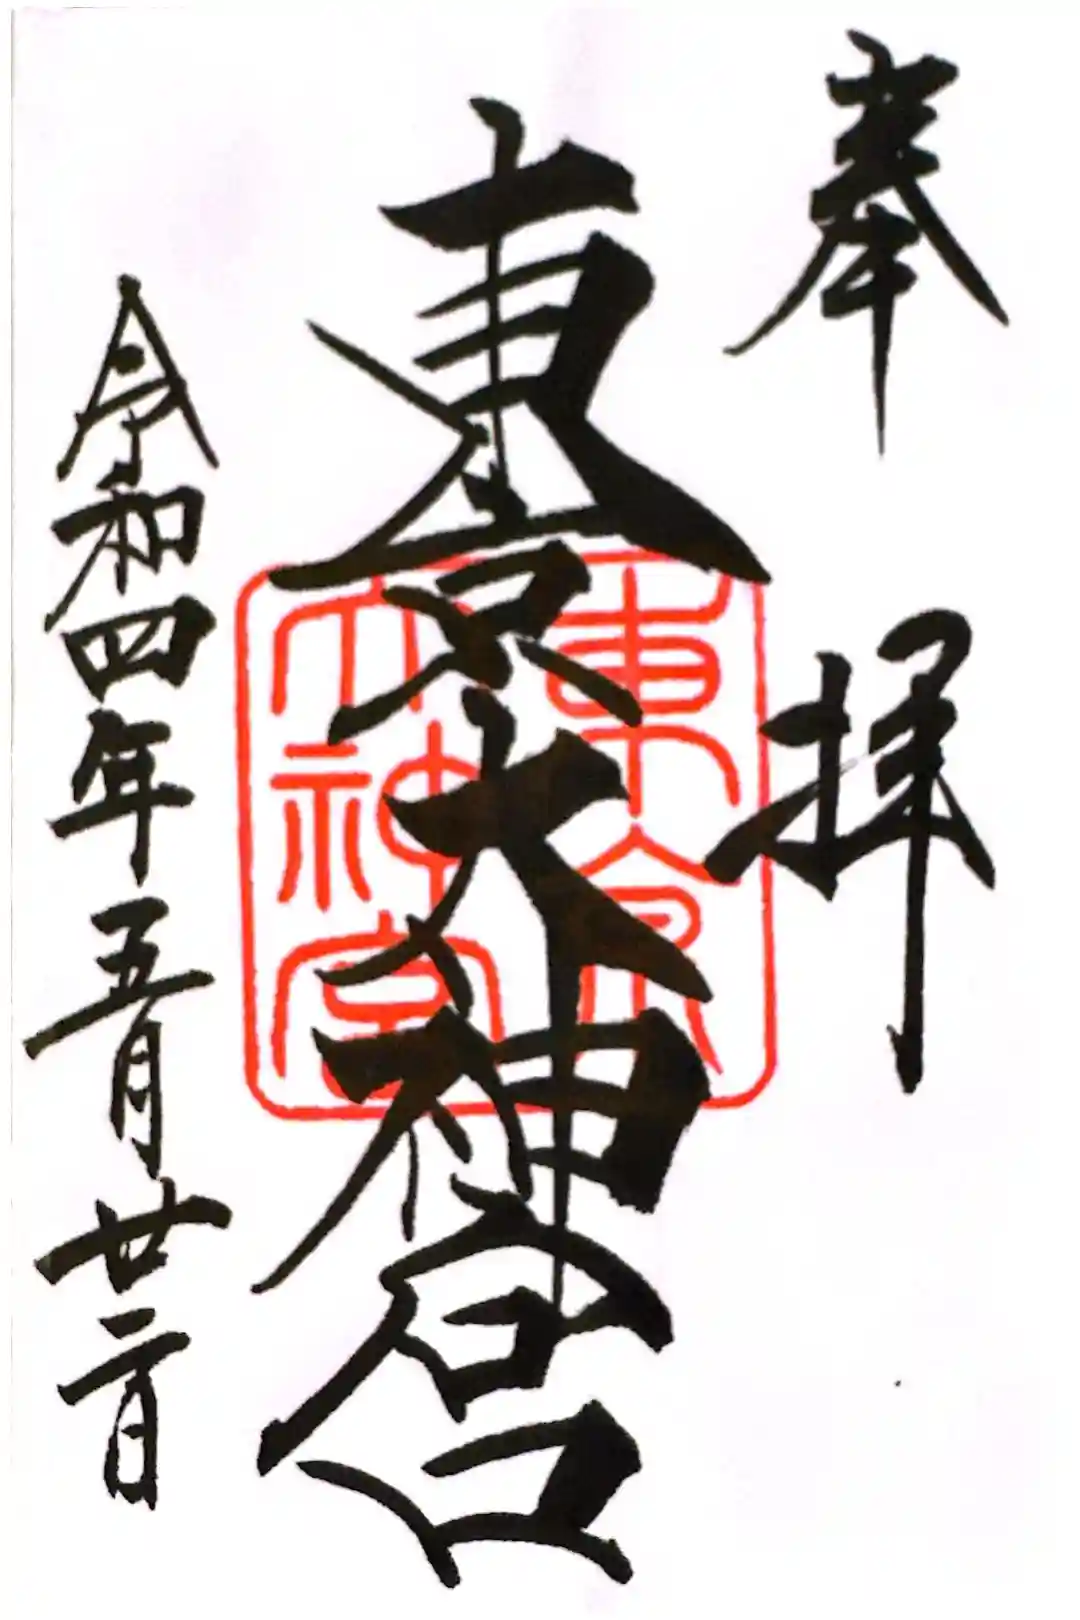 奉拝
東京大神宮
東京大神宮
令和四年五月廿二日